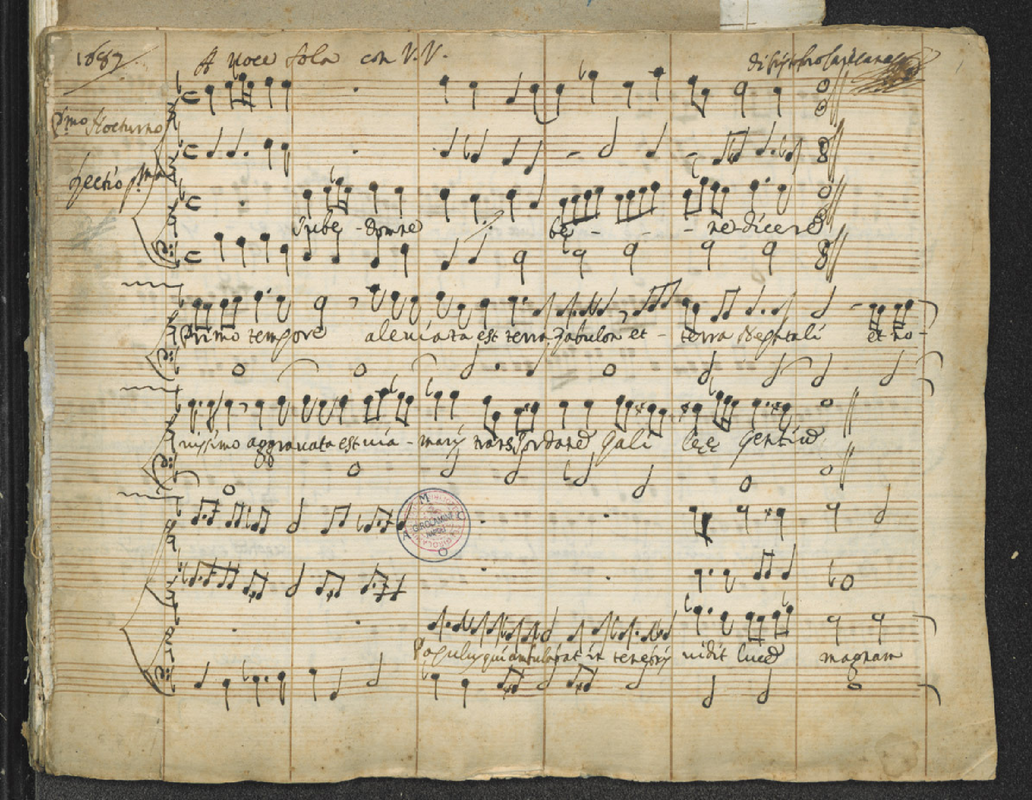 1687 A voce sola con V.V.
p.mo Nocturno
Lectio p.ma
Iube - domne be - - - ne-dicere
Primo tempore aleviata est terra Zabulon et - terra Neptali et no-
vissimo aggravata est via - maris trans Iordane Gali lee gentiu
Populus qui ambulabat in tenebris vidit luce magnam